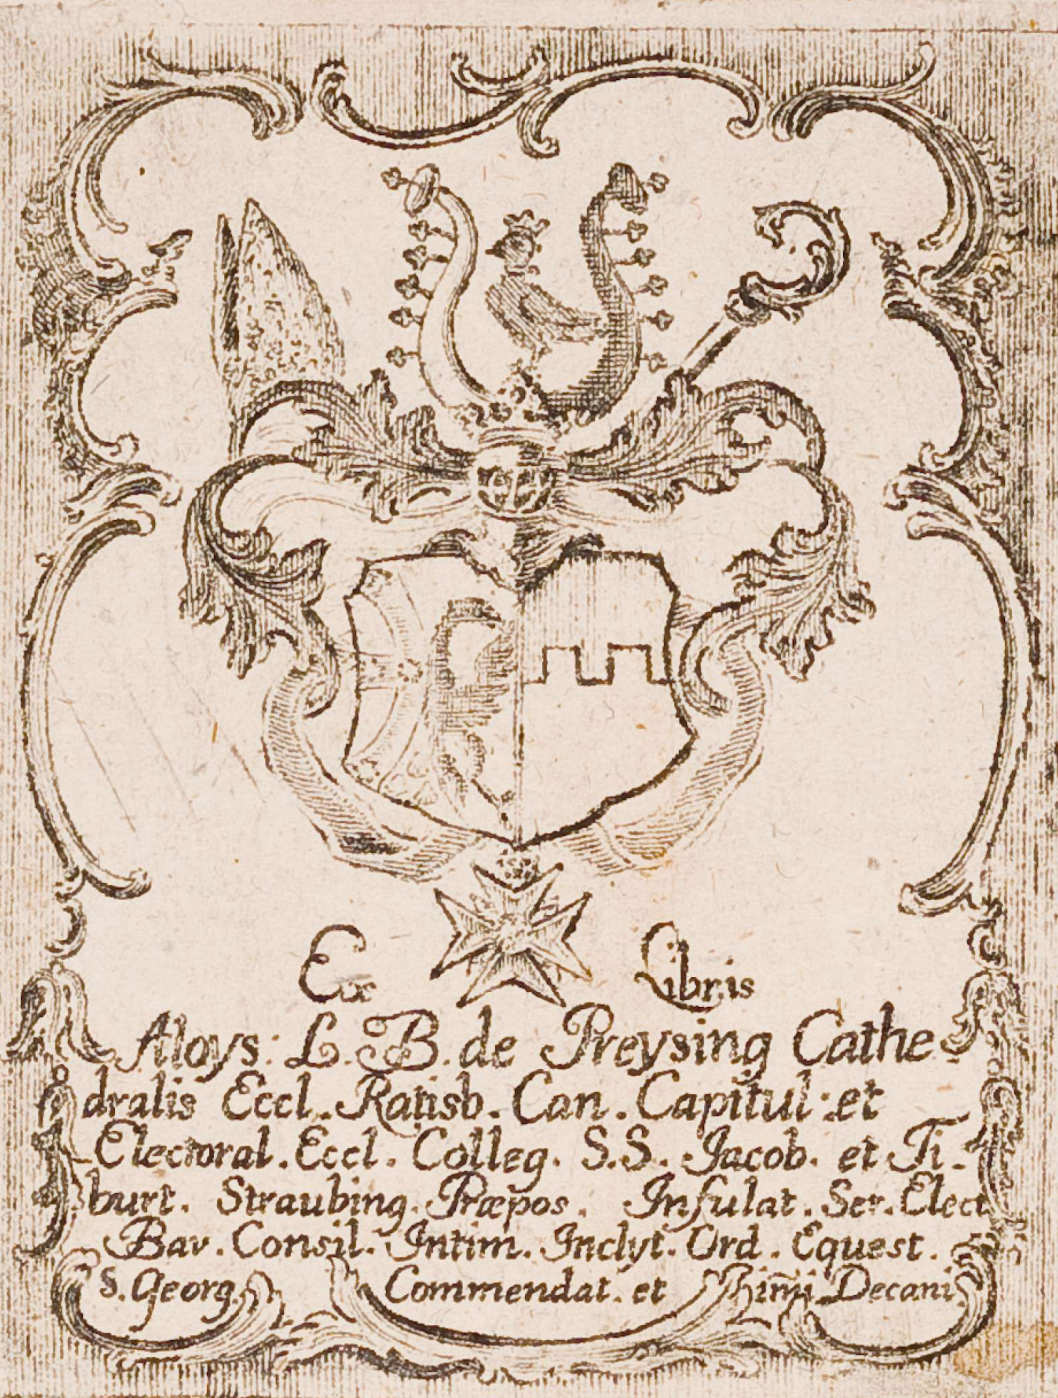 Ex Libris
Aloys: L. B. de Preysing Cathe
dralis Eccl. Ratisb. Can. Capitul: et
Electoral. Eccl. Colleg. S.S. Jacob. et Ti-
burt. Straubing. Præpos. Infulat. Ser. Elect
Bav. Consil. Intim. Inclyt. Ord. Equest.
S. Georg. Commendat. et Decani